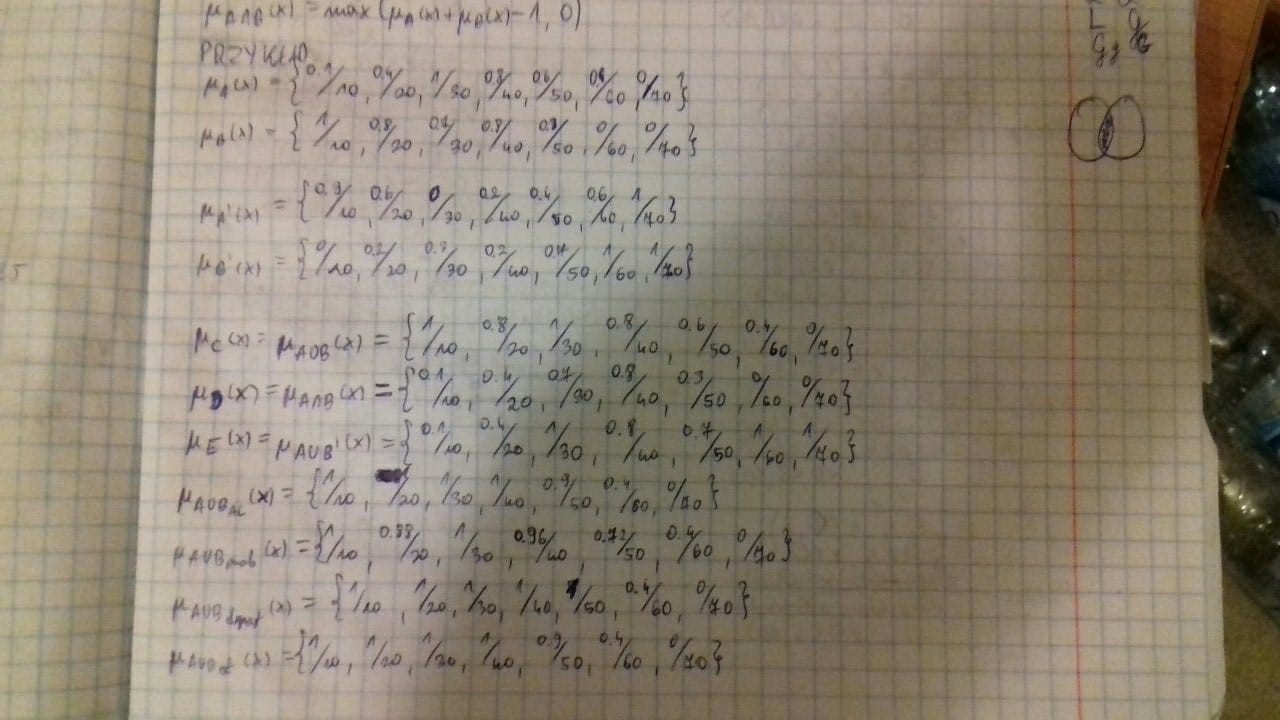 μA∧B(x) = max(μA(x)+μB(x)-1, 0)
PRZYKŁAD
μA(x) = {0.1/10, 0.4/20, 1/30, 0.8/40, 0.6/50, 0.4/60, 0/70}
μB(x) = {1/10, 0.8/20, 0.7/30, 0.8/40, 0.3/50, 0/60, 0/70}
μA'(x) = {0.9/10, 0.6/20, 0/30, 0.2/40, 0.4/50, 0.6/60, 1/70}
μB'(x) = {0/10, 0.2/20, 0.3/30, 0.2/40, 0.7/50, 1/60, 1/70}
μC(x) = μAUB(x) = {1/10, 0.8/20, 1/30, 0.8/40, 0.6/50, 0.4/60, 0/70}
μD(x) = μA∧B(x) = {0.1/10, 0.4/20, 0.7/30, 0.8/40, 0.3/50, 0/60, 0/70}
μE(x) = μAUB'(x) = {0.1/10, 0.4/20, 1/30, 0.8/40, 0.7/50, 1/60, 1/70}
μAUB(x) = {1/10, /20, 1/30, 1/40, 0.9/50, 0.4/60, 0/70}
μAUB(x) = {1/10, 0.88/20, 1/30, 0.96/40, 0.72/50, 0.4/60, 0/70}
μAUB(x) = {1/10, 1/20, 1/30, 1/40, 1/50, 0.4/60, 0/70}
μAUB(x) = {1/10, 1/20, 1/30, 1/40, 0.9/50, 0.4/60, 0/70}